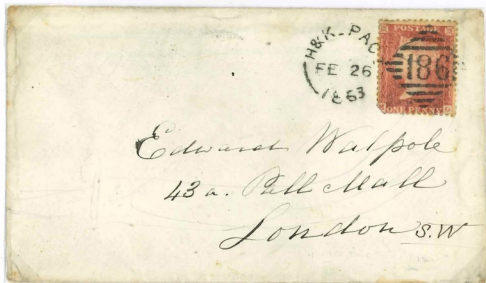 H&K-PAC
FE 26
1863
POSTAGE
186
ONE PENNY
Edward Walpole
43a. Pall Mall
London S.W